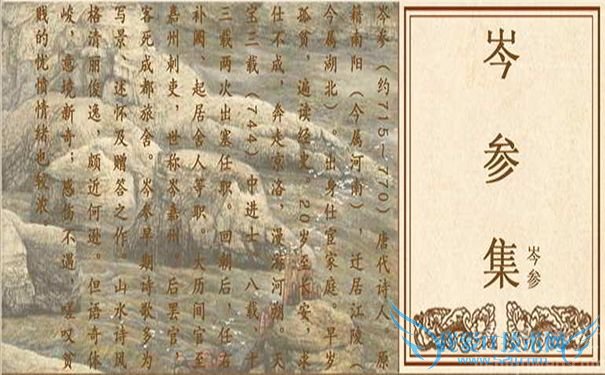 岑参集
岑参
岑参（约715—770）唐代诗人，原
籍南阳（今属河南），迁居江陵（
今属湖北）。出身仕宦家庭。早岁
孤贫，遍读经史。20岁至长安，求
仕不成，奔走京洛，漫游河朔。天
宝三载（744）中进士。八载、十
三载两次出塞任职。回朝后，任右
补阙、起居舍人等职。大历间官至
嘉州刺史，世称岑嘉州。后罢官，
客死成都旅舍。岑参早期诗歌多为
写景、述怀及赠答之作。山水诗风
格清丽俊逸，颇近何逊。但语奇体
峻，意境新奇；感伤不遇，嗟叹贫
贱的忧愤情绪也较浓